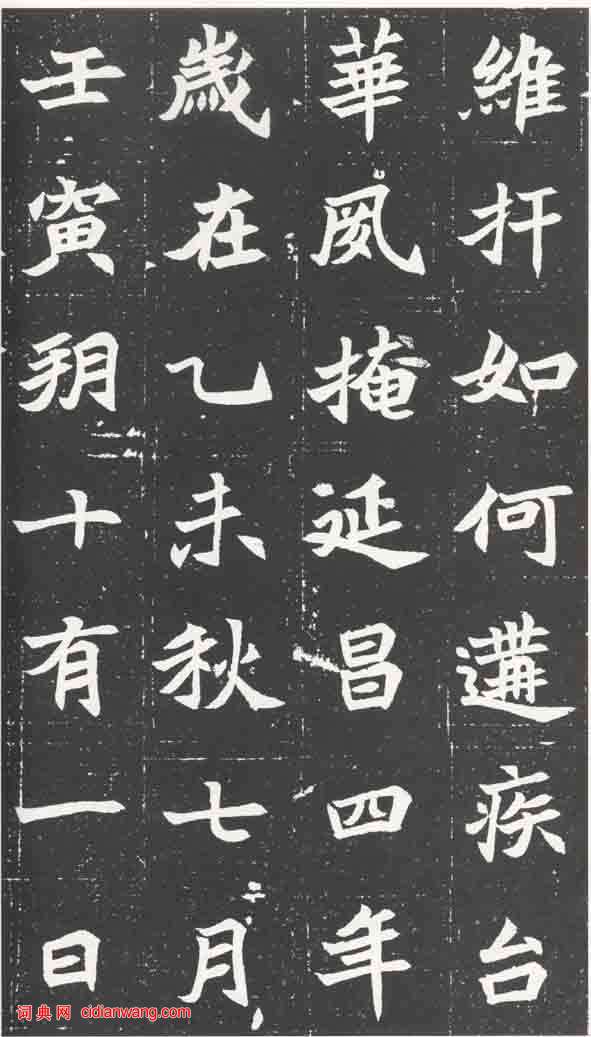 維扞如何遘疾台
華夙掩延昌四年
歲在乙未秋七月
壬寅朔十有一日
词典网 cidianwang.com